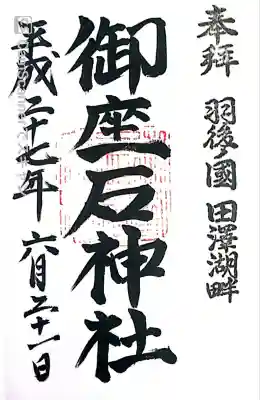 奉拝 羽後ノ國 田澤湖畔
御座石神社
平成二十七年 六月二十一日